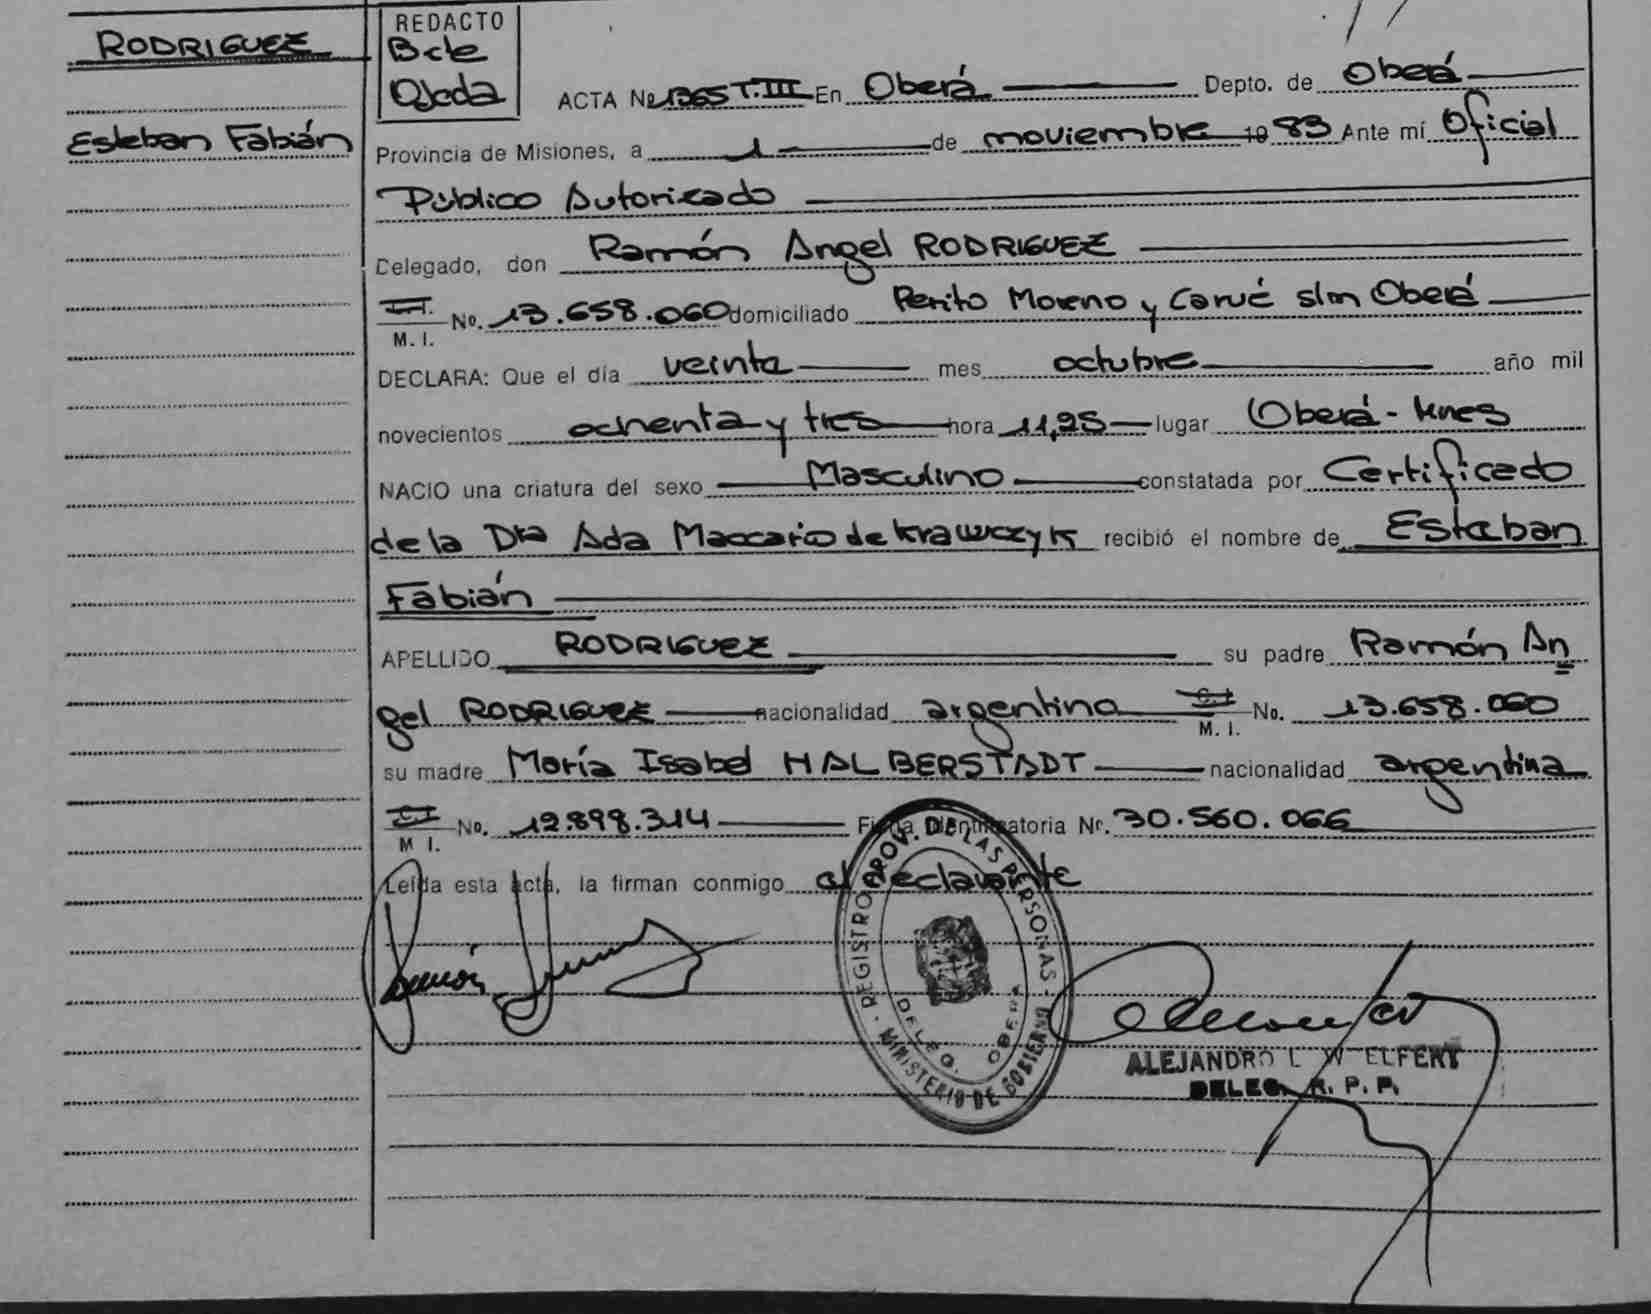 RODRIGUEZ
Esteban Fabián
REDACTO
Bcte
Ojeda
ACTA No 1365 T.III En Oberá Depto. de Oberá
Provincia de Misiones, a 1 de noviembre 19 83 Ante mí Oficial
Público Autorizado
Delegado, don Ramón Angel RODRIGUEZ
C.I. M. I. No. 13.658.060 domiciliado Perito Moreno y Carué s/n Oberá
DECLARA: Que el día veinte mes octubre año mil
novecientos ochenta y tres hora 11,25 lugar Oberá - Mnes
NACIO una criatura del sexo Masculino constatada por Certificado
de la Dra Ada Maccario de Krawczyk recibió el nombre de Esteban
Fabián
APELLIDO RODRIGUEZ su padre Ramón An
gel RODRIGUEZ nacionalidad argentina C.I. M. I. No. 13.658.060
su madre María Isabel HALBERSTADT nacionalidad argentina
C.I. M I. No. 12.898.314 Ficha Identificatoria Nº. 30.560.066
Leída esta acta, la firman conmigo el declarante
REGISTRO PROV. DE LAS PERSONAS - MINISTERIO DE GOBIERNO
DELEG. OBERA
ALEJANDRO L W ELFERT
DELEG. R. P. P.